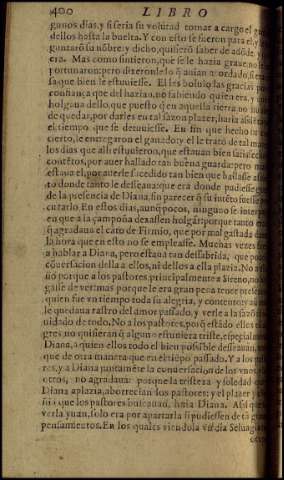 400 LIBRO
gunos dias, y si seria su volũtad tomar a cargo el g
dellos hasta la buelta. Y con esto se fueron para el, y
guntarõ su nõbre; y dicho, quisierõ saber de adõde
era. Mas como sintieron, que se le hazia graue, no le
portunaron: pero dixerõle lo q̃ auian
sa que bien le estuuiesse. El les boluio las gracias po
confiança que del hazian, no sabiendo quien era, y
holgaua dello, que puesto q̃ en aquella sierra no
de quedar, por darles en tal sazon plazer, haria assi
el tiempo que se detuuiesse. En fin que hecho
cierto, le entregaron el ganado: y el le trató de tal ma
los dias que alli estuuieron, que estauan bien satisfechos
contẽtos, por auer hallado tan buena guarda: pero
estaua el, por auerle sucedido tan bien que hallasse
to donde tanto le desseaua: que era donde pudiesse g
de la presencia de Diana, sin parecer q̃ a su intẽto fuesse
curarlo. En estos dias, aunq̃ pocos, ninguno se
en que a la çampoña dexassen holgar: porque tanto
q̃ agradaua el cãto de Firmio, que por mal gastada
la hora que en esto no se empleasse. Muchas vezes
a hablar a Diana, pero estaua tan dessabrida, que
cõuersacion della a ellos, ni dellos a ella plazia. No a
sio porque a los pastores, principalmente a Sireno, no
gasse de ver: mas porque le era gran pena tener presente
quien fue vn tiempo toda su alegria, y contento: y
le quedaua rastro del amor passado, y verle a la sazõ
uidado de todo. No a los pastores, porq̃ estãdo ellos
gres, no quisieran q̃ alguno estuuiera triste, especialmente
Diana, a quien ellos todo el bien possible desseauan,
que de otra manera que en el tiẽpo passado. Y a los
res, y a Diana juntamẽte la conuersacion de los vnos a
otros, no agradaua: porque la tristeza y soledad que
Diana aplazia, aborrecian los pastores: y el plazer y
sia que los pastores buscauan, huia Diana. Assi que
verla yuan, solo era por apartarla si pudiessen de la
pensamientos. En los quales viendola vn dia Seluagia